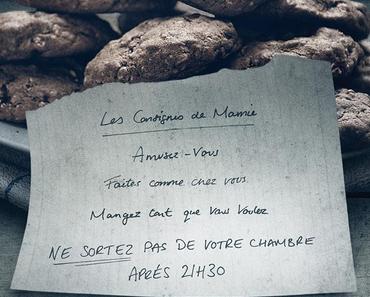 Les Consignes de Mamie
Amusez-Vous
Faites comme chez vous.
Mangez tant que vous voulez
NE SORTEZ PAS DE VOTRE CHAMBRE
APRÈS 21H30